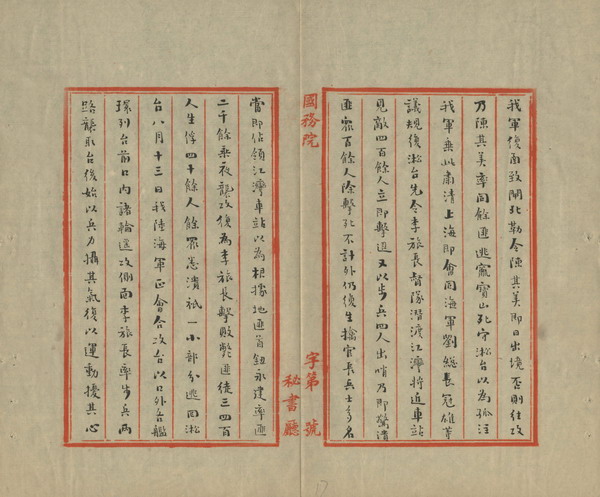 我軍復南致開北勒令陳其美即日出境否則往攻
乃陳其美率同餘匪逃竄寶山死守淞台以為孤注
我軍乘此肅清上海即會同海軍劉總長冠雄等
議規復淞台先令李旅長督隊潛渡江灣將近車站
見敵四百餘人立即擊退又以步兵四人出哨乃即驚潰
匪眾百餘人除擊死不計外仍復生擒官長兵士多名
國務院
字第 號
秘書廳
當即佔領江灣車站以為根據地匪首鈕永建率匪
二千餘乘夜襲攻復為李旅長擊敗斃匪徒三四百
人生俘四十餘人餘眾悉潰祇一小部分逃回淞
台八月十三日我陸海軍正會合攻台以口外各艦
環列台前口內諸輪進攻側面李旅長率步兵兩
路襲取台後始以兵力懾其氣復以運動擾其心
17